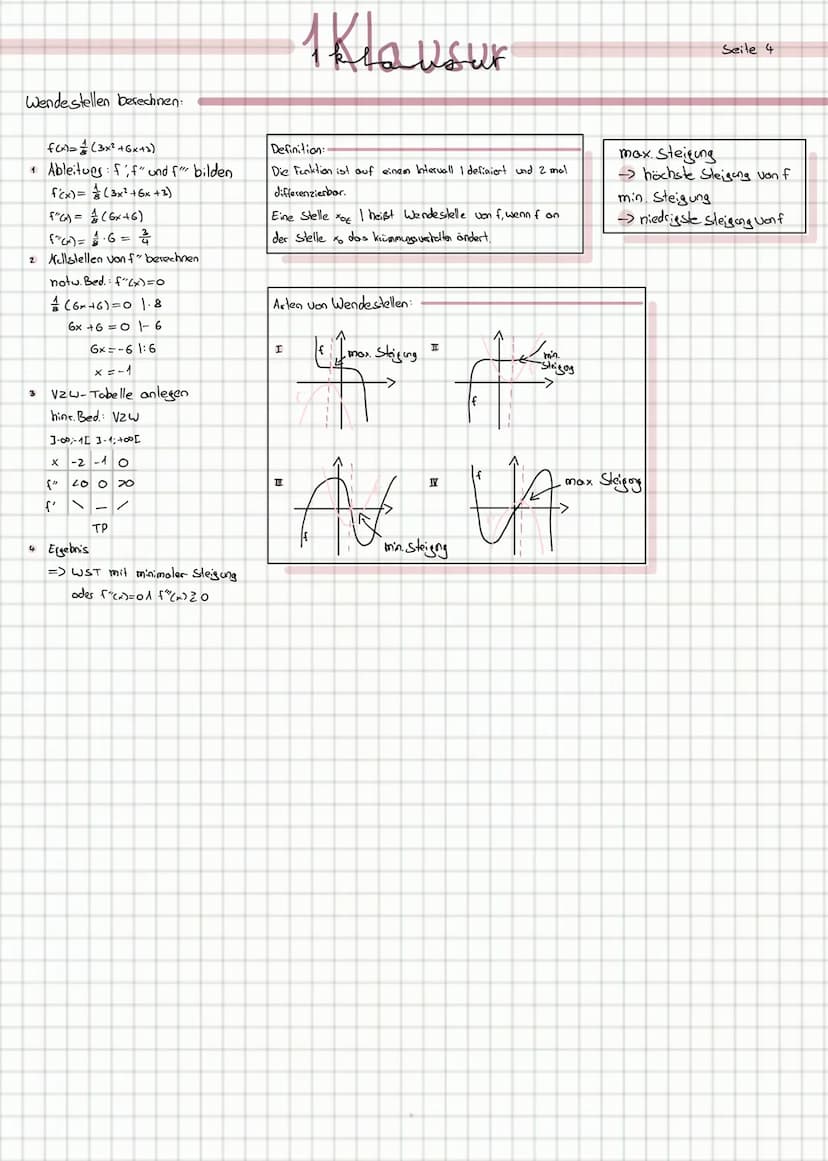 1 Klausur
1 klausur
Seite 4
Wendestellen berechnen:
f(x)=1/8(3x²+6x+3)
1 Ableitung: f', f'' und f''' bilden
f'(x)=1/8(3x²+6x+3)
f''(x)=1/8(6x+6)
f'''(x)=1/8·6=3/4
2 Nullstellen von f'' berechnen
notw. Bed.: f''(x)=0
1/8(6x+6)=0 |·8
6x+6=0 |-6
6x=-6 |:6
x=-1
3 VZW-Tabelle anlegen
hinr. Bed.: VZW
]-∞;-1[ ]-1;+∞[
x -2 -1 0
f'' <0 0 >0
f' \ – /
TP
4 Ergebnis
=> WST mit minimaler Steigung
oder f''(x)=0 ∧ f'''(x)≥0
Definition:
Die Funktion ist auf einem Intervall I definiert und 2 mal
differenzierbar.
Eine Stelle x₀∈ I heißt Wendestelle von f, wenn f an
der Stelle x₀ das Krümmungsverhalten ändert.
max. Steigung
-> höchste Steigung von f
min. Steigung
-> niedrigste Steigung von f
Arten von Wendestellen:
I f max. Steigung
II f min. Steigung
III f min. Steigung
IV f max Steigung